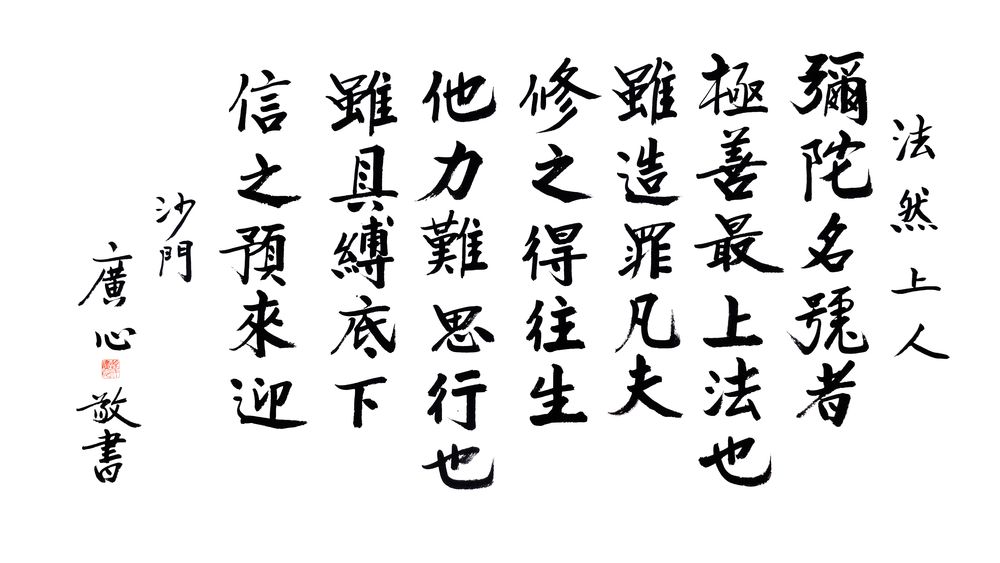 法然上人
彌陀名號者
極善最上法也
雖造罪凡夫
修之得往生
他力難思行也
雖具縛底下
信之預來迎
沙門
廣心
敬書